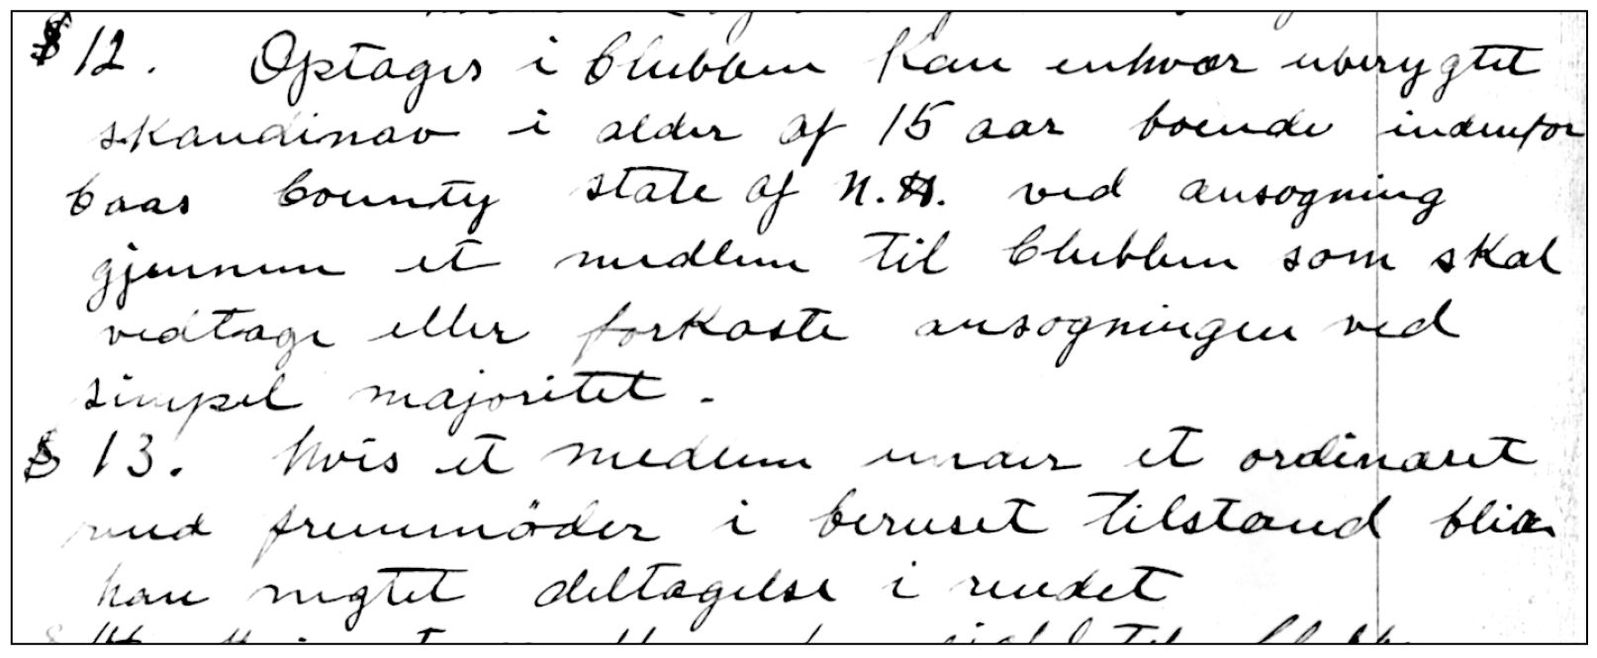 § 12. Optages i Clubben kan enhver uberygtet
skandinav i alder af 15 aar boende indenfor
Caas County state of N.D. ved ansogning
gjennem et medlem til Clubben som skal
vedtage eller forkaste ansogningen ved
simpel majoritet.
§ 13. hvis et medlem under et ordinært
rend fremmöder i beruset tilstand blir
han negtet deltagelse i rendet